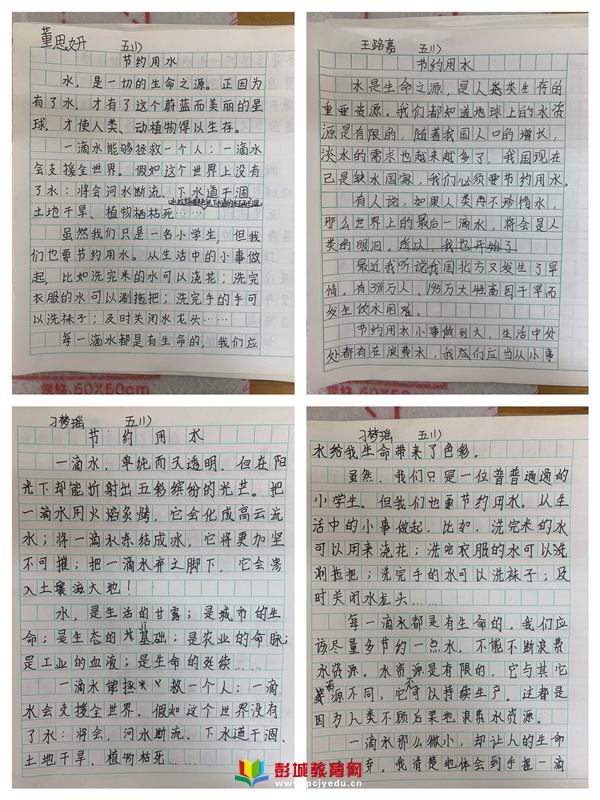 董思妍 五(1)
节约用水
水,是一切的生命之源。正因为
有了水,才有了这个蔚蓝而美丽的星
球,才使人类、动植物得以生存。
一滴水能够拯救一个人;一滴水
会支援全世界。假如这个世界上没有
了水:将会河水断流、下水道干涸、
土地干旱、植物枯死……
虽然我们只是一名小学生,但我
们也要节约用水。从生活中的小事做
起,比如洗完米的水可以浇花;洗完
衣服的水可以涮拖把;洗完手的手可
以洗袜子;及时关闭水龙头……
每一滴水都是有生命的,我们应
王路嘉 五(1)
节约用水
水是生命之源,是人类类生存的
重要资源。我们都知道地球上的水资
源是有限的,随着我国人口的增长,
淡水的需求也越来越多了,我国现在
已是缺水国家,我们必须要节约用水。
有人说,如果人类再不珍惜水,
那么世界上的最后一滴水,将会是人
类的眼泪。所以,我也开始了
最近我听说我国北方又发生了旱
情。有398万人、195万大牲畜因干旱而
发生饮水困难。
节约用水小事做到大,生活中处
处都有在浪费水,我们应当从小事
刁梦瑶 五(1)
节约用水
一滴水,单纯而又透明,但在阳
光下却能折射出五彩缤纷的光芒。把
一滴水用火焰炙烤,它会化成高云流
水;将一滴水冻结成冰,它将更加坚
不可摧;把一滴水弃之脚下,它会渗
入土壤滋大地!
水,是生活的甘露;是城市的生
命;是生态的基础;是农业的命脉;
是工业的血液;是生命的延续……
一滴水能拯救一个人;一滴
水会支援全世界。假如这个世界没有
了水:将会,河水断流、下水道干涸、
土地干旱,植物枯死……
刁梦瑶 五(1)
水给我生命带来了色彩。
虽然,我们只是一位普普通通的
小学生。但我们也要节约用水。从生
活中的小事做起,比如,洗完米的水
可以用来浇花;洗完衣服的水可以洗
涮拖把;洗完手的水可以洗袜子;及
时关闭水龙头……
每一滴水都是有生命的,我们应
该尽量多节约一点水,不能不断浪费
水资源。水资源是有限的,它与其它
资源不同,它不可以持续生产。这都是
因为人类不顾后果地浪费水资源。
一滴水那么微小,却让人的生命
我清楚地体会到手握一滴
彭城教育网
www.pcjyedu.cn